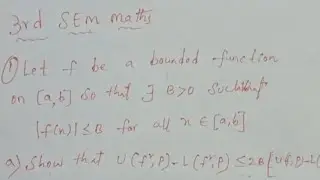 3rd SEM maths
① Let f be a bounded function
on [a,b] so that ∃ B>0 such that
|f(x)| ≤ B for all x ∈ [a,b]
a) Show that U(f²,P) - L(f²,P) ≤ 2B[U(f,P)-L(